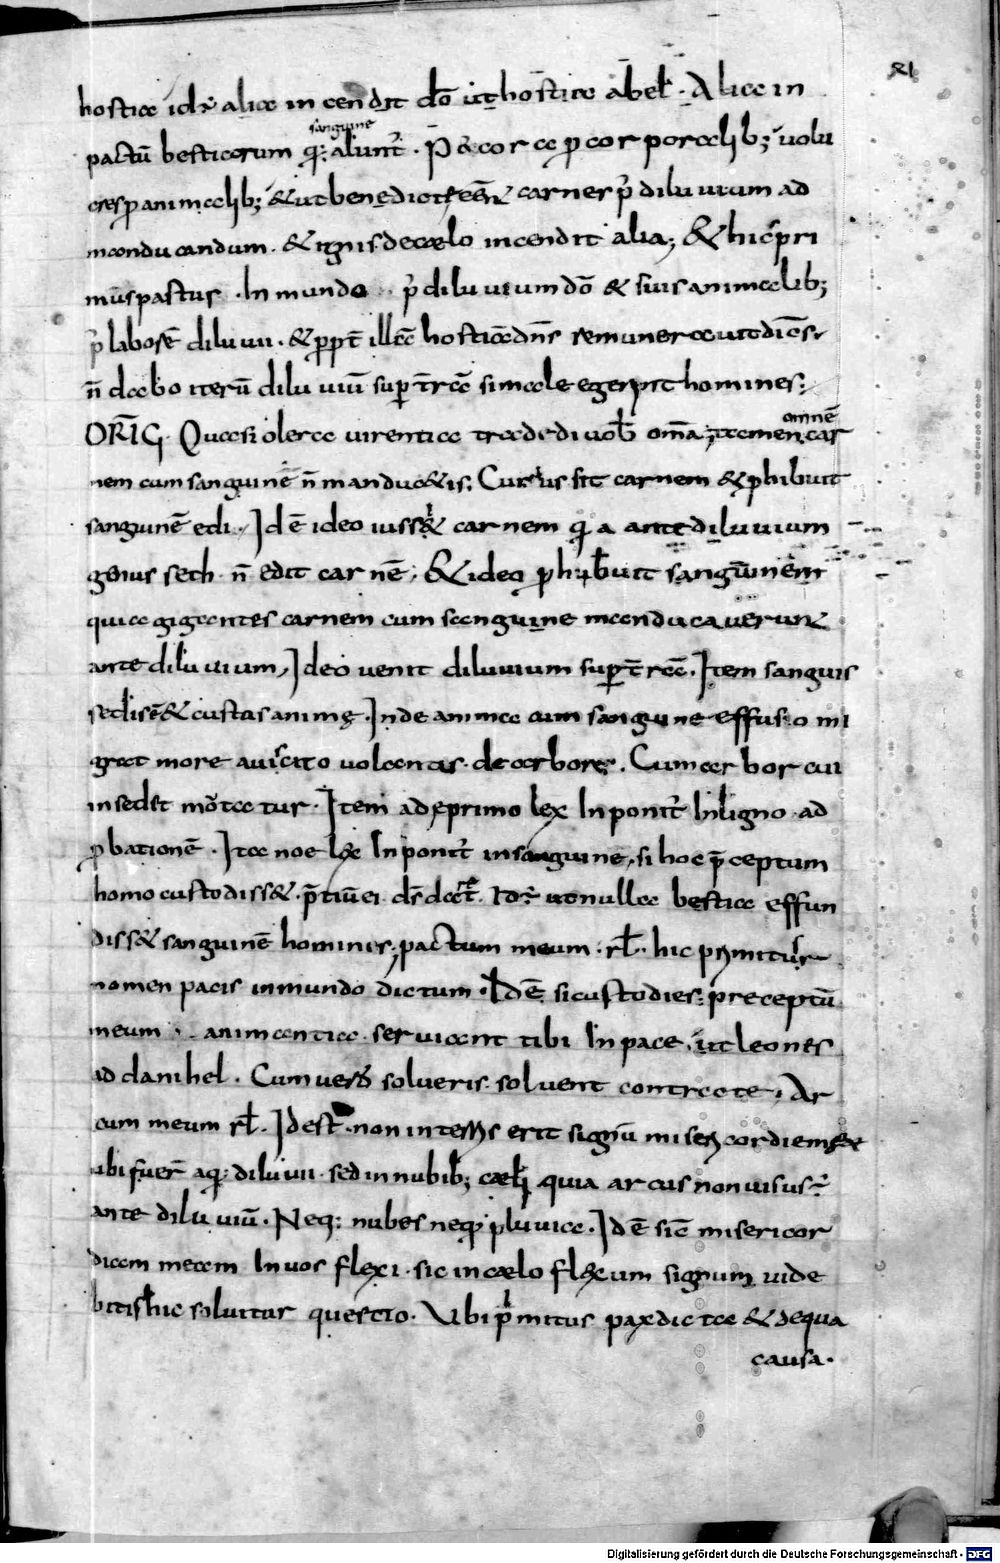 XI
hostiæ id ÷ aliæ incendit dō ut hostiæ abel· Aliæ in
pactū bestiarum q; sanguine alunt̄· Pecora pecoraalib; uolu
cres p animalib; & ut benedict& carnes p̄ diluuium ad
manducandum· & ignis de cælo incendit alia; & hic pri
mus pastus· In mundo p̄ diluuium dō & suis animalib;
p̄ laborē diluuii· & ꝓpt̄ illā hostiā dn̄s remunerauit dicēs·
n̄ dabo iterū diluuiū sup t̄rā simul e homines;
ORĪG· Quasi olera uirentia tradedi uob̄ om̄a; tamen omnē car
nem cum sanguine n̄ manduc&is; Cur iussit carnem & ꝓhibuit
sanguinē edi· Id ē ideo iuss& carnem q a ante diluuium
genus seth n̄ edit carnē; & ideo ꝓhibuit sanguinem
quia gigantes carnem cum sanguine manducauerunt
ante diluuium, Ideo uenit diluuium sup t̄rā· Item sanguis
sedis ē & custas animę· Inde anima cum sanguine effuso mi
grat more auis cito uolantis de arbore· Cum arbor cui
insedet mōtatur· Item ade primo lex Inponit̄ In ligno ad
ꝓbationē· Ita noe lex Inponit̄ in sanguine, si hoc p̄ceptum
homo custodiss&· p̄tiū ei dī dat̄· Id ÷ ut nulla bestia effun
diss& sanguinē hominis; pactum meum· rł· hic primitus
nomen pacis in mundo dictum· Id Ē si custodies preceptū
meum· animantia seruiant tibi In pace, ut leones
ad danihel· Cum uero solueris· soluent contra te, Ar
cum meum rł· Id est non in terris erit signū misericordiæ meæ
ubi fuer̄ aq; diluuii· sed in nubib; cæli quia arcus non uisus ÷
ante diluuiū· Neq; nubes neq; pluuiæ· Id ē sic misericor
diam meam In uos flexi· sic in cælo flexum signum uide
bitis hic soluitur questio· Ubi primitus pax dicta & de qua
causa·
Digitalisierung gefördert durch die Deutsche Forschungsgemeinschaft - DFG